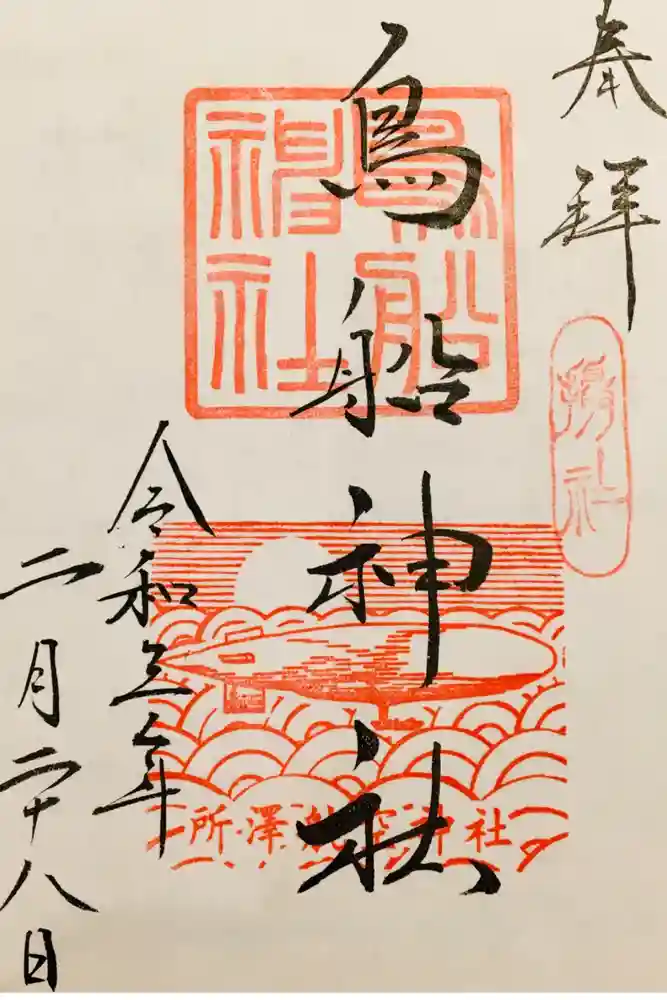 奉拝
鳥船神社
鳥船神社
令和三年
二月二十八日
所澤航空神社